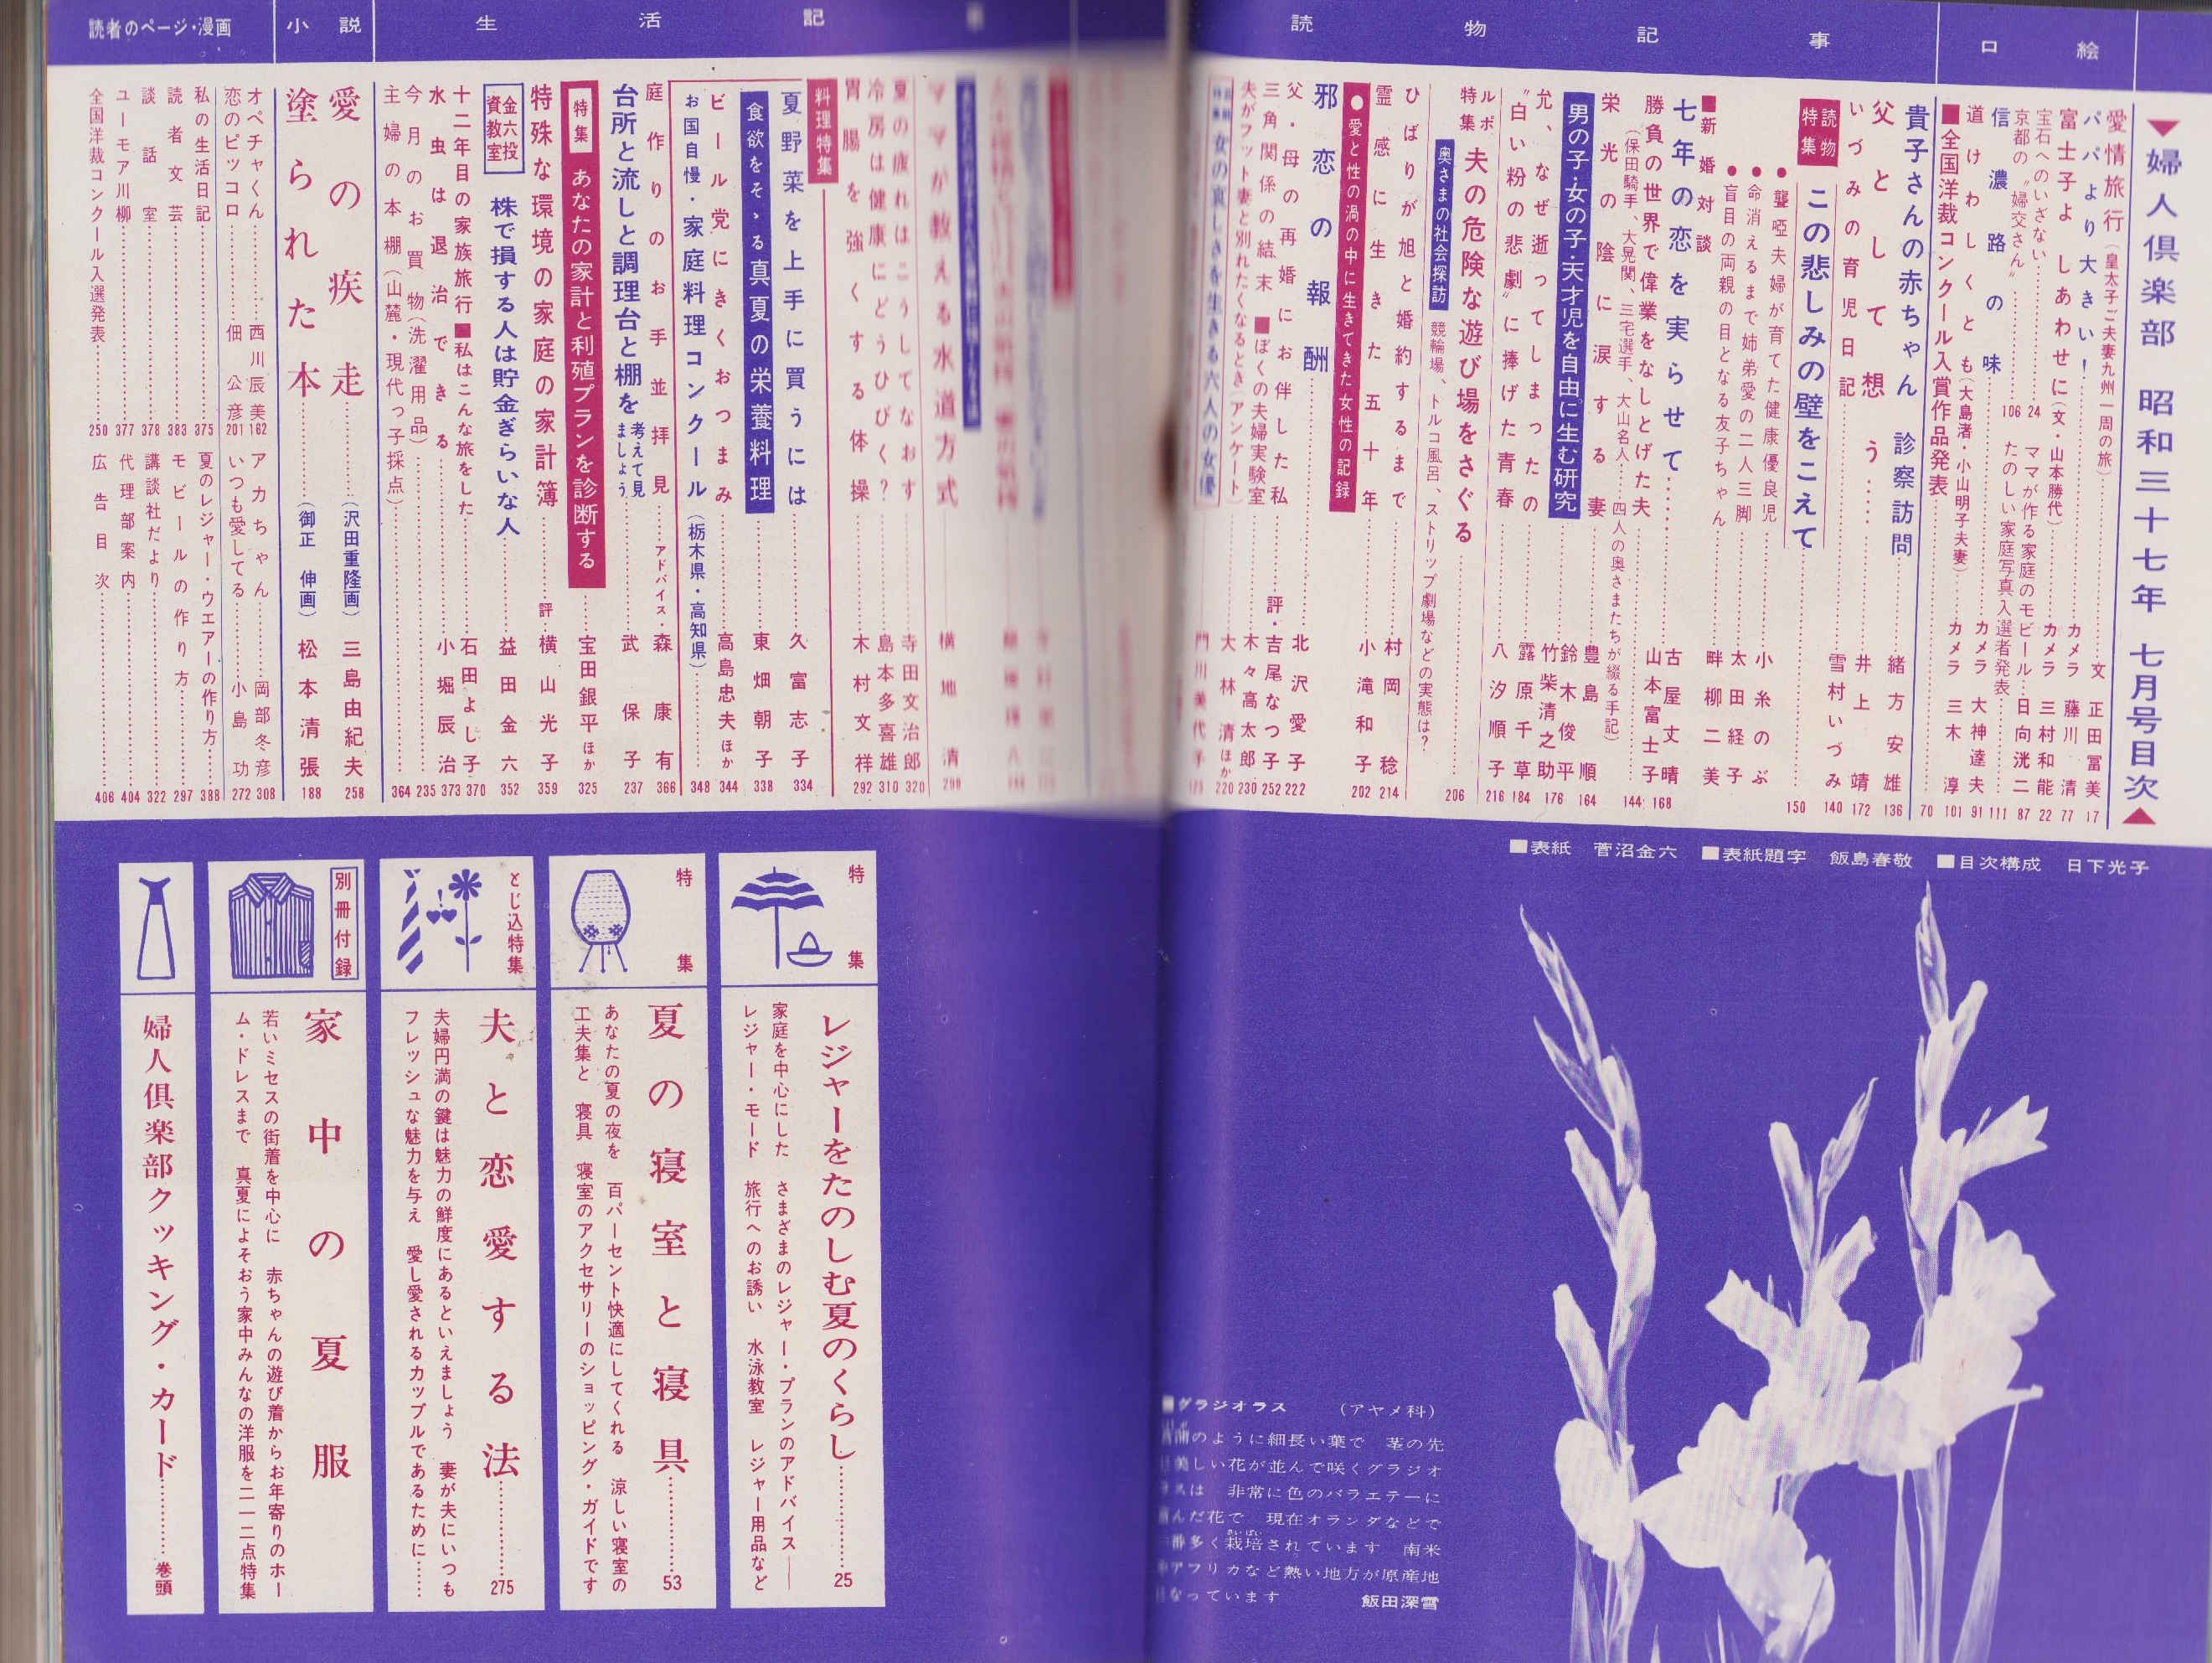 口絵
読物記事
生活記
小説
読者のページ・漫画
婦人倶楽部 昭和三十七年 七月号目次
愛情旅行(皇太子ご夫妻九州一周の旅)……文 正田冨美 17
パパより大きい!……カメラ 藤川清 77
富士子よ しあわせに(文・山本勝代)……カメラ 三村和能 22
宝石へのいざない……24
ママが作る家庭のモビール……日向洸二 87
京都の〝婦交さん〟……106
たのしい家庭写真入選者発表……111
信濃路の味……カメラ 大神達夫 91
道けわしくとも(大島渚・小山明子夫妻)……カメラ 三木淳 101
■全国洋裁コンクール入賞作品発表……70
貴子さんの赤ちゃん 診察訪問……緒方安雄 136
父として想う……井上靖 172
いづみの育児日記……雪村いづみ 140
読物特集
この悲しみの壁をこえて……150
●聾啞夫婦が育てた健康優良児……小糸のぶ
●命消えるまで姉弟愛の二人三脚……太田経子
●盲目の両親の目となる友子ちゃん……畔柳二美
■新婚対談
七年の恋を実らせて……古屋丈晴 山本富士子 168
勝負の世界で偉業をなしとげた夫
(保田騎手、大晃関、三宅選手、大山名人……四人の奥さまたちが綴る手記) 144
栄光の陰に涙する妻……豊島順 164
男の子・女の子・天才児を自由に生む研究……鈴木俊平 竹柴清之助 176
允、なぜ逝ってしまったの……露原千草 184
〝白い粉の悲劇〟に捧げた青春……八汐順子 216
ルポ特集
夫の危険な遊び場をさぐる……206
奥さまの社会探訪
競輪場、トルコ風呂、ストリップ劇場などの実態は?
ひばりが旭と婚約するまで……村岡稔 214
霊感に生きた五十年……小滝和子 202
●愛と性の渦の中に生きてきた女性の記録
邪恋の報酬……北沢愛子 222
父・母の再婚にお伴した私……評・吉尾なつ子 252
三角関係の結末 ■ぼくの夫婦実験室……木々高太郎 230
夫がフット妻と別れたくなるとき(アンケート)……大林清ほか 220
女の哀しさを生きる六人の女優……門川美代子
ママが教える水道方式……横地清
夏の疲れはこうしてなおす……寺田文治郎 320
冷房は健康にどうひびく?……島本多喜雄 310
胃腸を強くする体操……木村文祥 292
料理特集
夏野菜を上手に買うには……久富志子 334
食欲をそゝる真夏の栄養料理……東畑朝子 338
ビール党にきくおつまみ……高島忠夫ほか 344
お国自慢・家庭料理コンクール(栃木県・高知県)……348
庭作りのお手並拝見……アドバイス・森康有 366
台所と流しと調理台と棚を考えて見ましょう……武保子 237
特集
あなたの家計と利殖プランを診断する……宝田銀平ほか 325
特殊な環境の家庭の家計簿……評 横山光子 359
金六投資教室
株で損する人は貯金ぎらいな人……益田金六 352
十二年目の家族旅行 ■私はこんな旅をした……石田よし子 370
水虫は退治できる……小堀辰治 373
今月のお買物(洗濯用品)……235
主婦の本棚(山麓・現代っ子採点)……364
愛の疾走……(沢田重隆画) 三島由紀夫 258
塗られた本……(御正伸画) 松本清張 188
オペチャくん……西川辰美 162
恋のピッコロ……佃公彦 201
アカちゃん……岡部冬彦 308
いつも愛してる……小島功 272
私の生活日記……375
読者文芸……383
談話室……378
ユーモア川柳……377
全国洋裁コンクール入選発表……250
夏のレジャー・ウエアーの作り方……388
モビールの作り方……297
講談社だより……322
代理部案内……404
広告目次……406
■表紙 菅沼金六 ■表紙題字 飯島春敬 ■目次構成 日下光子
特集
レジャーをたのしむ夏のくらし……25
家庭を中心にした さまざまのレジャー・プランのアドバイス——
レジャー・モード 旅行へのお誘い 水泳教室 レジャー用品など
特集
夏の寝室と寝具……53
あなたの夏の夜を 百パーセント快適にしてくれる 涼しい寝室の
工夫集と 寝具 寝室のアクセサリーのショッピング・ガイドです
とじ込特集
夫と恋愛する法……275
夫婦円満の鍵は魅力の鮮度にあるといえましょう 妻が夫にいつも
フレッシュな魅力を与え 愛し愛されるカップルであるために……
別冊付録
家中の夏服
若いミセスの街着を中心に 赤ちゃんの遊び着からお年寄りのホー
ム・ドレスまで 真夏によそおう家中みんなの洋服を二一二点特集
婦人倶楽部クッキング・カード……巻頭
■グラジオラス (アヤメ科)
のように細長い葉で 茎の先
美しい花が並んで咲くグラジオ
スは 非常に色のバラエテーに
んだ花で 現在オランダなどで
番多く栽培されています 南米
アフリカなど熱い地方が原産地
なっています 飯田深雪